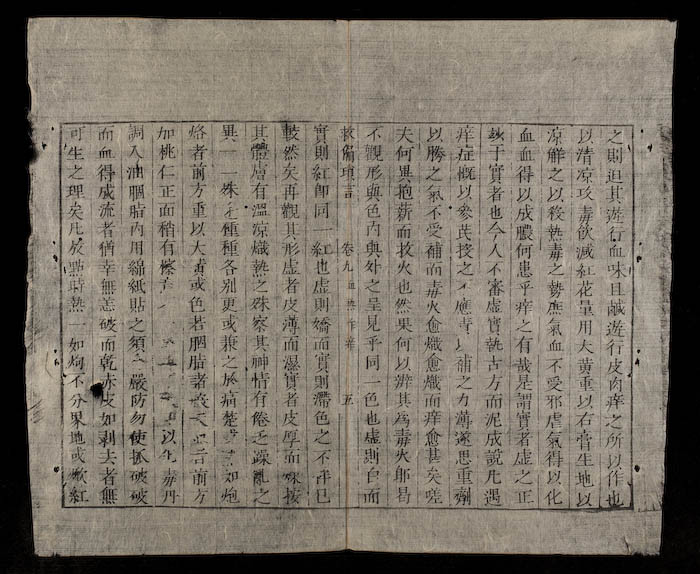 之則迫其遊行血味且鹹遊行皮肉痒之所以作也
以清凉攻毒飲减紅花呈用大黄重以石膏生地以
凉解之以殺熱毒之勢庶氣血不受邪虐氣得以化
血血得以成膿何患乎痒之有哉是謂實者虚之正
於于實者也今人不審虚實執古方而泥成說凡遇
痒症慨以參芪投之不應責以補之力薄遂思重劑
以勝之氣不受補而毒火愈熾愈熾而痒愈甚矣嗟
夫何異抱薪而救火也然果何以辨其爲毒火郎曷
不觀形與色内與外之呈見乎同一色也虚則白而
救偏瑣言 卷九 血熱作痒 五
實則紅卽同一紅也虚則嬌而實則滯色之不伴已
較然矣再觀其形虚者皮薄而濕實者皮厚而燥按
其體膚有溫凉熾熱之殊察其神情有倦乏躁亂之
異一一殊 種種各别更或兼之於痛楚 如炮
烙者前方重以大黄或色若胭脂諸 前方
加桃仁正面稍有擦 以 毒丹
調入油胭脂内用綿紙貼之須 嚴防勿使抓破破
而血得成流者猶幸無恙破而乾赤皮如剥去者無
可生之理矣凡放點時熱一如炮不分界地或歘紅